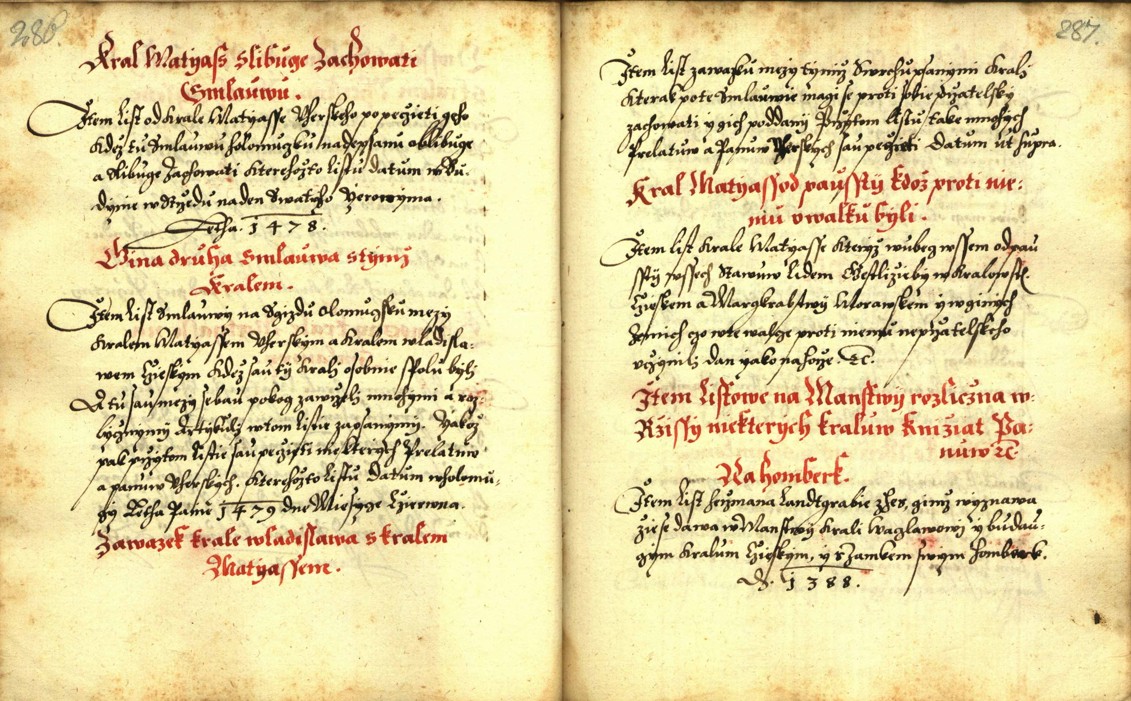 286.
Kral Matyass slibuge Zachowati
Smlauwu.
Item List od Krale Matyasse Uherskeho po peczieti geho
Kdez tu Smlauwu holomuczku nadepsanu oblibuge
a slibuge Zachowati Kterehozto listu datum w Bu-
dynie w Strzedu na den Swateho Yeronyma.
Letha. 1478.
Gina druha Smlauwa s tymz
Kralem.
Item List Smlauwy na Sgizdu olomuczskem mezy
Kralem Matyassem Uherskym a Kralem wladisla-
wem Czieskym Kdez sau ty Krali osobnie spolu byli
A tu sau mezy sebau pokog zawrzeli mnohymi a roz-
licznymi Artykuli w tom listie zapsanymi. yakoz
pak przytom listie sau peczieti niekterych Prelatuw
a panuw Uherskych. Kterehozto listu Datum w holomu-
czy Letha Panie 1479 dne Miesycze Czierwna.
Zawazek krale wladislawa s kralem
Matyassem.
287.
Item List zawazku mezy tymiz Swrchupsanymi Krali
Kterak po te Smlauwie magi se proti sobie przatelsky
zachowati y gich poddany Przytom listu take mnohych
Prelatuw a Panuw Uherskych sau peczieti Datum ut supra.
Kral Matyass odpaussty kdoz proti nie-
mu w walku byli.
Item list Krale Matyasse kteryz wubeg wssem odpau
sstij wssech Stawuw lidem Gestlizie by w Kralowst.
Czieskem a Margkrabstwij Morawskem y w ginych
Zemich czo w te walcze proti niemu neprzatelskeho
uczynili dan yako nahorze. &c.
Item Listowe na Manstwij rozliczna w-
Rzissy niekterych kraluw Knizat Pa-
nuw &c
Na homberk.
Item List herzmana Landtgrabie z hes, gimz wyznawa
zie se dawa w Manstwij Krali Waczlawowi y budau-
czym Kraluom Czieskym, y s Zamkem swym homberk.
D. 1388.